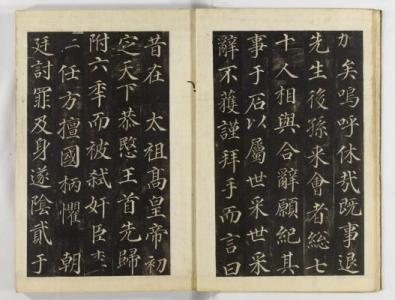 加矣嗚呼休哉既事退
先生後孫来會者總七
十人相與合辭願紀其
事于石以屬世采世采
辭不獲謹拜手而言曰
昔在 太祖高皇帝初
定天下恭愍王首先歸
附六秊而被弑奸臣李
二任方擅國柄懼 朝
廷討罪及身遂陰貳于